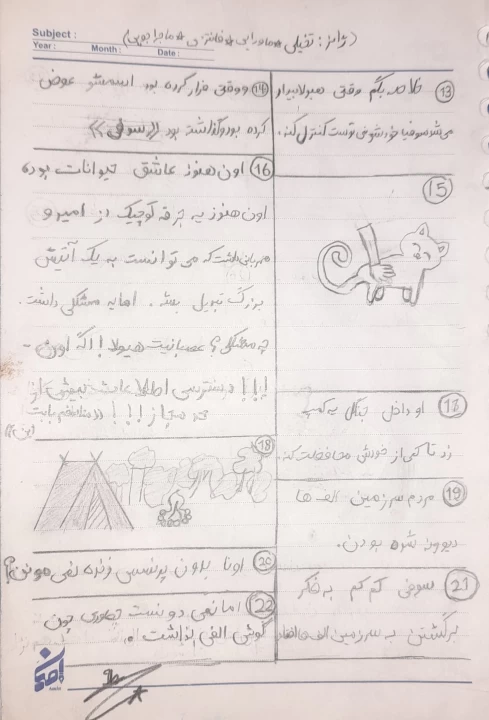 Subject :
Year : Month : Date :
(ژانر: تخیلی * ماورایی * فانتزی * ماجراجویی)
13 خلاصه بگم وقتی هیولا بیدار
می‌شد سوفیا خودشو نمی‌تونست کنترل کنه.
14 و وقتی فرار کرده بود اسمشو عوض
کرده بود و گذاشته بود «سوفی»
15
16 اون هنوز عاشق حیوانات بوده
اون هنوز یه جرقه کوچیک از امید و
مهربانی داشت که می‌توانست به یک آتیش
بزرگ تبدیل بشه. اما یه مشکلی داشت.
چه مشکلی؟ عصبانیت هیولا! اگه اون -
دسترسی اطلاعات بیش از
حد مجاز!!!
17 او داخل جنگل یه کمپ
زد تا کمی از خودش محافظت کنه.
18
19 مردم سرزمین الف ها
دیوونه شده بودن.
20 اونا بدون پرنسس زنده نمی‌مونن؟
21 سوفی کم کم به فکر
برگشتن به سرزمین الف ها افتاد
22 اما نمی دونست چطوری چون
گوش الفی نداشت.